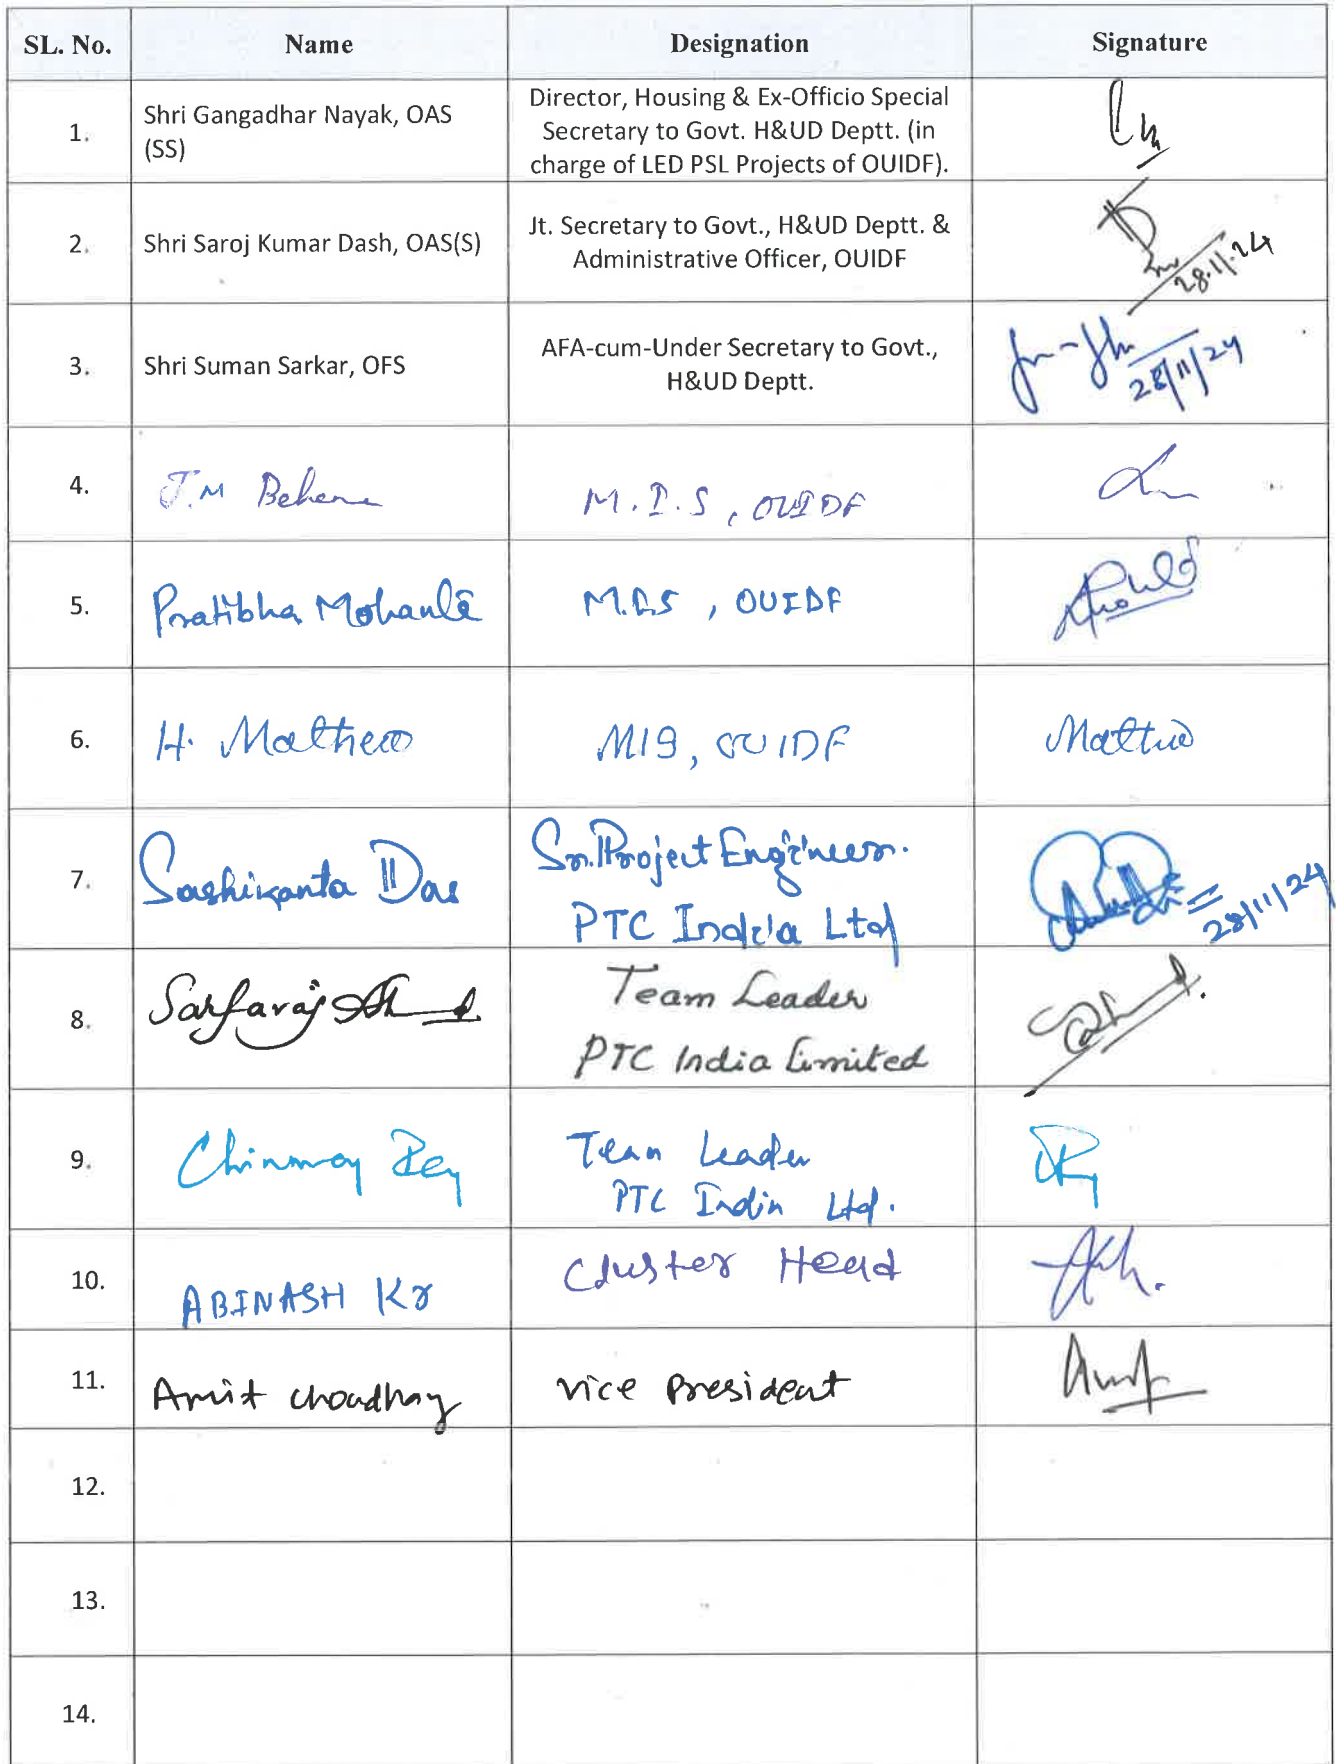 SL. No. Name Designation Signature
1. Shri Gangadhar Nayak, OAS
(SS)
Director, Housing & Ex-Officio Special
Secretary to Govt. H&UD Deptt. (in
charge of LED PSL Projects of OUIDF).
2. Shri Saroj Kumar Dash, OAS(S)
Jt. Secretary to Govt., H&UD Deptt. &
Administrative Officer, OUIDF
28.11.24
3. Shri Suman Sarkar, OFS
AFA-cum-Under Secretary to Govt.,
H&UD Deptt.
28/11/24
4. J.M Behera M.I.S, OUIDF
5. Pratibha Mohanta OUIDF
6. H. Mathew MIS, OUIDF
7. Sashikanta Das
Sr. Project Engineer.
PTC India Ltd
28/11/24
8. Sarfaraj
Team Leader
PTC India Limited
9. Chinmoy Dey
Team Leader
PTC India Ltd.
10. ABINASH Kr Cluster Head
11. Amit Choudhay Vice President
12.
13.
14.